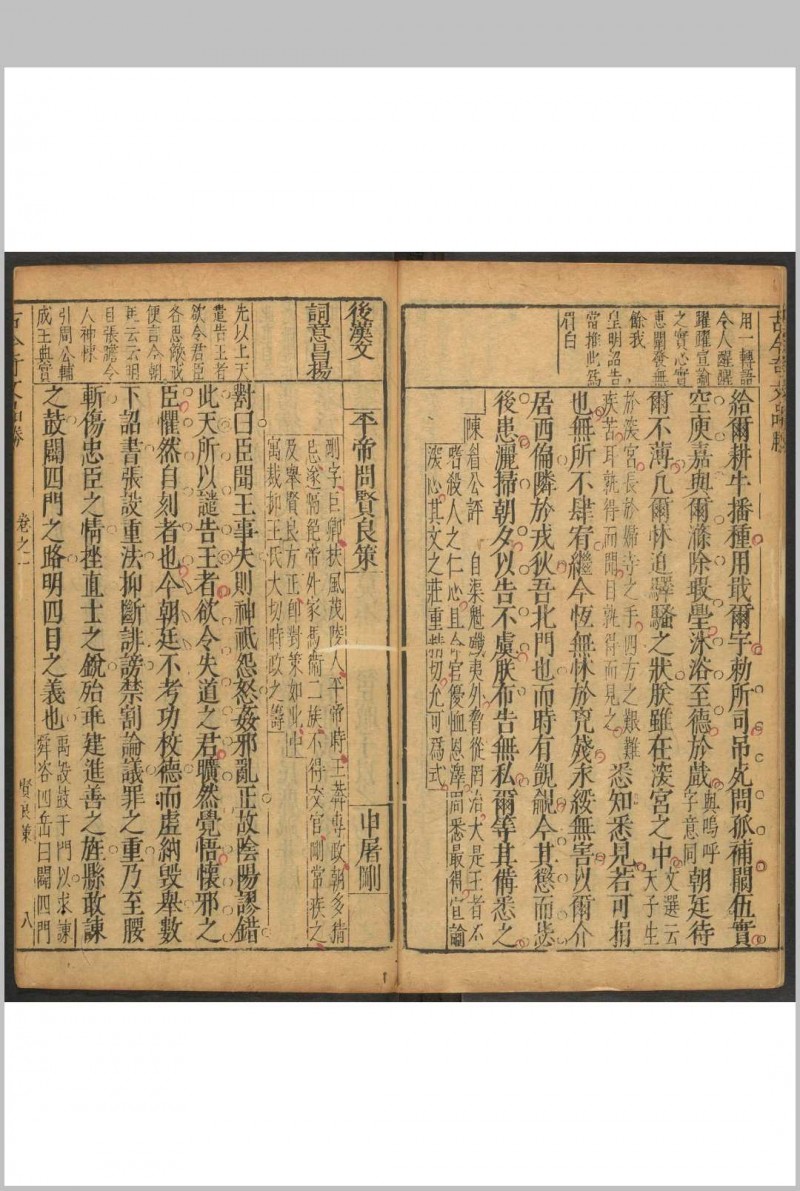 用一轉語
令人醒醒
躍躍宣諭
之實心實
惠開發無
餘我
皇明詔告
當推此為
眉白
給爾耕牛播種用戢爾字勑所司吊死問孤補闕伍實
空庾嘉與爾滌除瑕舋沐浴至德於戲與嗚呼字意同朝廷待
爾不薄凡爾怵迫驛騷之狀朕雖在深宮之中文選云天子生
於深宮長於婦寺之手四方之艱難
疾苦耳孰得而聞目孰得而見之悉知悉見若可捐
也無所不肆宥繼今恆無怵於兇殘永綏無害以爾介
居西偏隣於戎狄吾北門也而時有覬覦今其懲而毖
後患灑掃朝夕以告不虞朕布告無私爾等其備悉之
陳緝公評 自渠魁殲夷外脅從罔治大是王者不
嗜殺人之仁心且令官優恤恩澤周悉最得宣諭
深心其文之莊重措切允可為式
後漢文
詞意昌揚
平帝問賢良策
申屠剛
剛字巨卿扶風茂陵人平帝時王莽專政朝多猜
忌遂隔絕帝外家馮衛二族不得交官剛常疾之
及舉賢良方正即對策如此中
寓裁抑王氏大切時政之籌
先以上天
譴告王者
欲令君臣
各思變戒
便言今朝
廷云云明
目張膽令
人神悚
引周公輔
成王典實
對曰臣聞王事失則神祇怨怒姦邪亂正故陰陽謬錯
此天所以譴告王者欲令失道之君曠然覺悟懷邪之
臣懼然自刻者也今朝廷不考功校德而虛納毀譽數
下詔書張設重法抑斷誹謗禁割論議罪之重乃至腰
斬傷忠臣之情挫直士之銳殆乖建進善之旌縣敢諫
之鼓闢四門之路明四目之義也禹設鼓于門以求諫
舜咨四岳曰闢四門
卷之二
賢良策
八